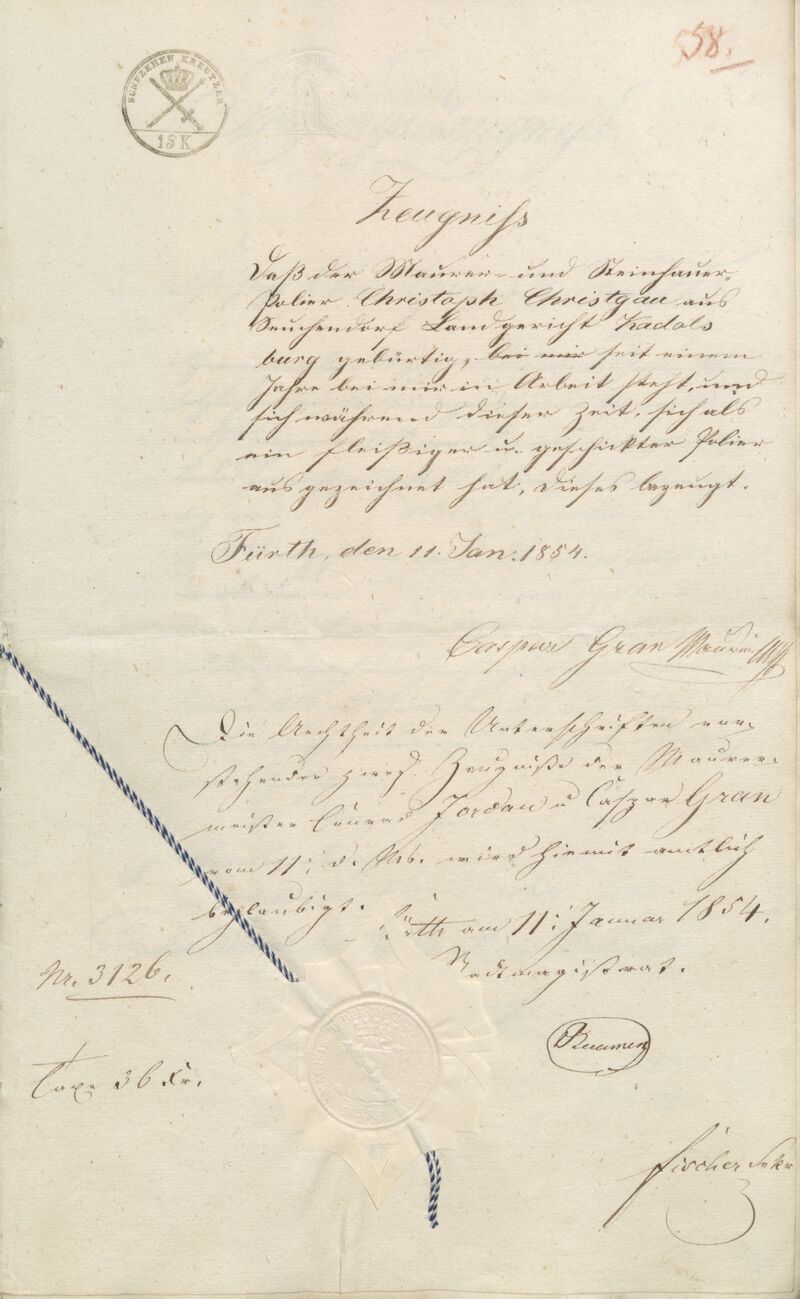 58.
FÜNFZEHEN KREUTZER
15 K
Zeugniss
Daß der Maurer- und Steinhauer-
Polier Christoph Christgau aus
Seuchendorf Landgericht Kadols
burg gebürtig, bei mir seit einem
Jahre bei mir in Arbeit steht, und
sich während dieser Zeit, sich als
ein fleißiger u. geschickter Polier
ausgezeichnet hat, dieses bezeugt.
Fürth, den 11. Jan. 1854.
Caspar Gran
Die Aechtheit der Unterschriften vor-
stehender Zeugniße der Maurer-
meister Conrad Jordan u Caspar Gran
vom 11: d. Mts. wird hiemit amtlich
beglaubigt.
Fürth am 11: Januar 1854.
Stadtmagistrat.
Nr. 3126.
Taxe 36 Kr.
Fischer Sekr